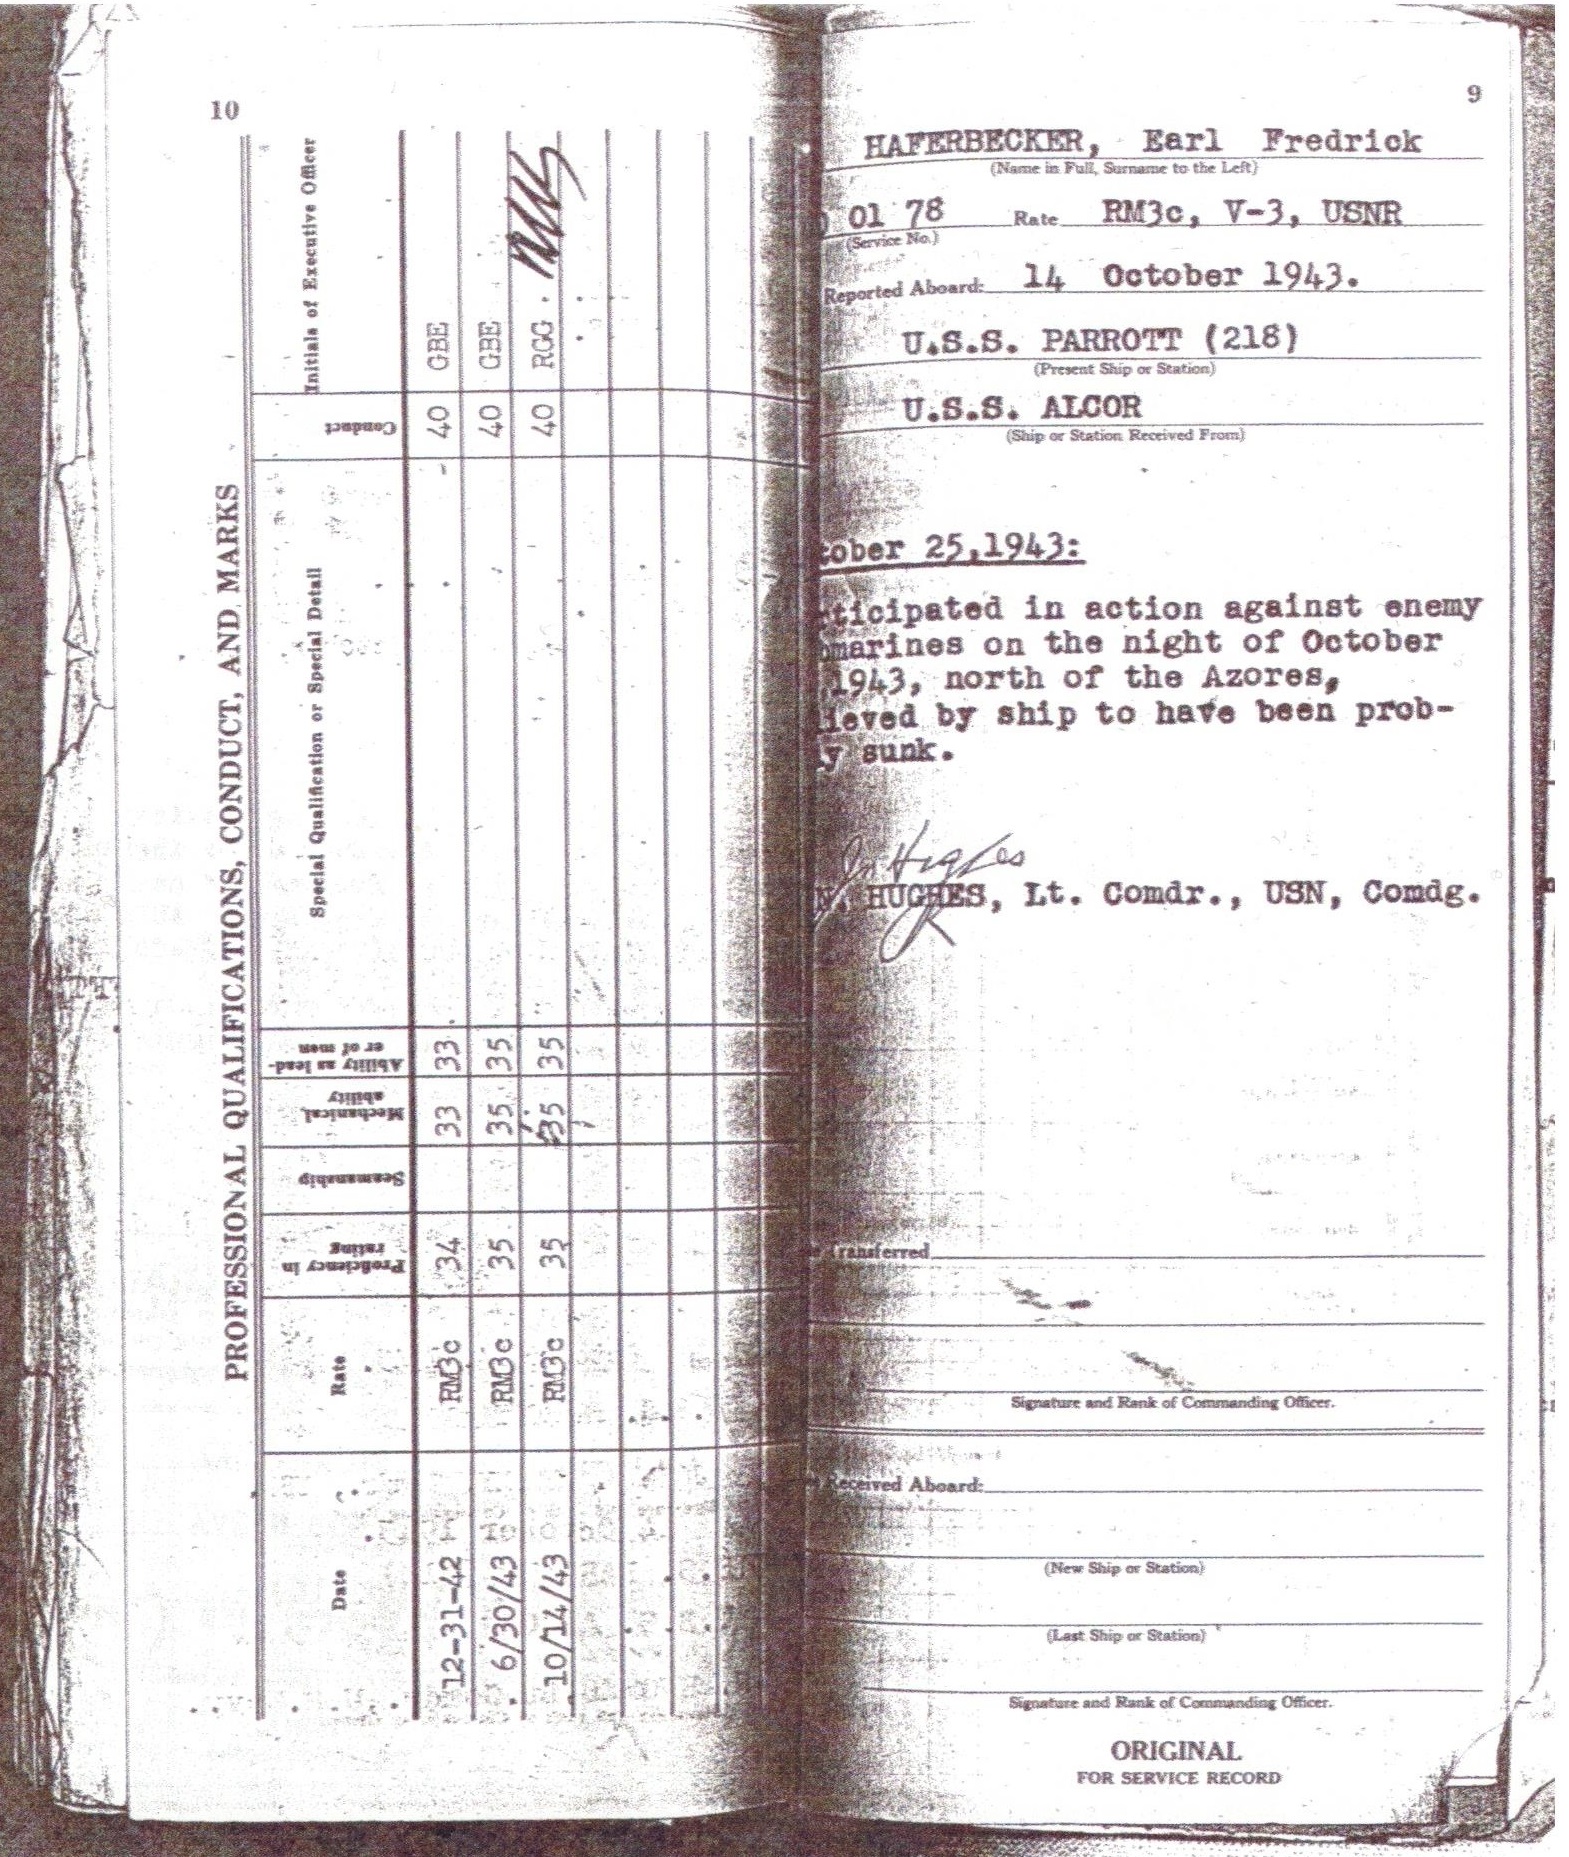 10
PROFESSIONAL QUALIFICATIONS, CONDUCT, AND MARKS
Date Rate Proficiency in rating Seamanship Mechanical ability Ability as leader of men Special Qualification or Special Detail Conduct Initials of Executive Officer
12-31-42 RM3c 34 33 33 40 GBE
6/30/43 RM3c 35 35 35 40 GBE
10/14/43 RM3c 35 35 35 40 RGG
9
HAFERBECKER, Earl Fredrick
(Name in Full, Surname to the Left)
01 78 Rate RM3c, V-3, USNR
(Service No.)
Reported Aboard: 14 October 1943.
U.S.S. PARROTT (218)
(Present Ship or Station)
U.S.S. ALCOR
(Ship or Station Received From)
tober 25,1943:
ticipated in action against enemy
marines on the night of October
,1943, north of the Azores,
lieved by ship to have been prob-
y sunk.
N. HUGHES, Lt. Comdr., USN, Comdg.
Transferred
Signature and Rank of Commanding Officer.
Received Aboard:
(New Ship or Station)
(Last Ship or Station)
Signature and Rank of Commanding Officer.
ORIGINAL
FOR SERVICE RECORD